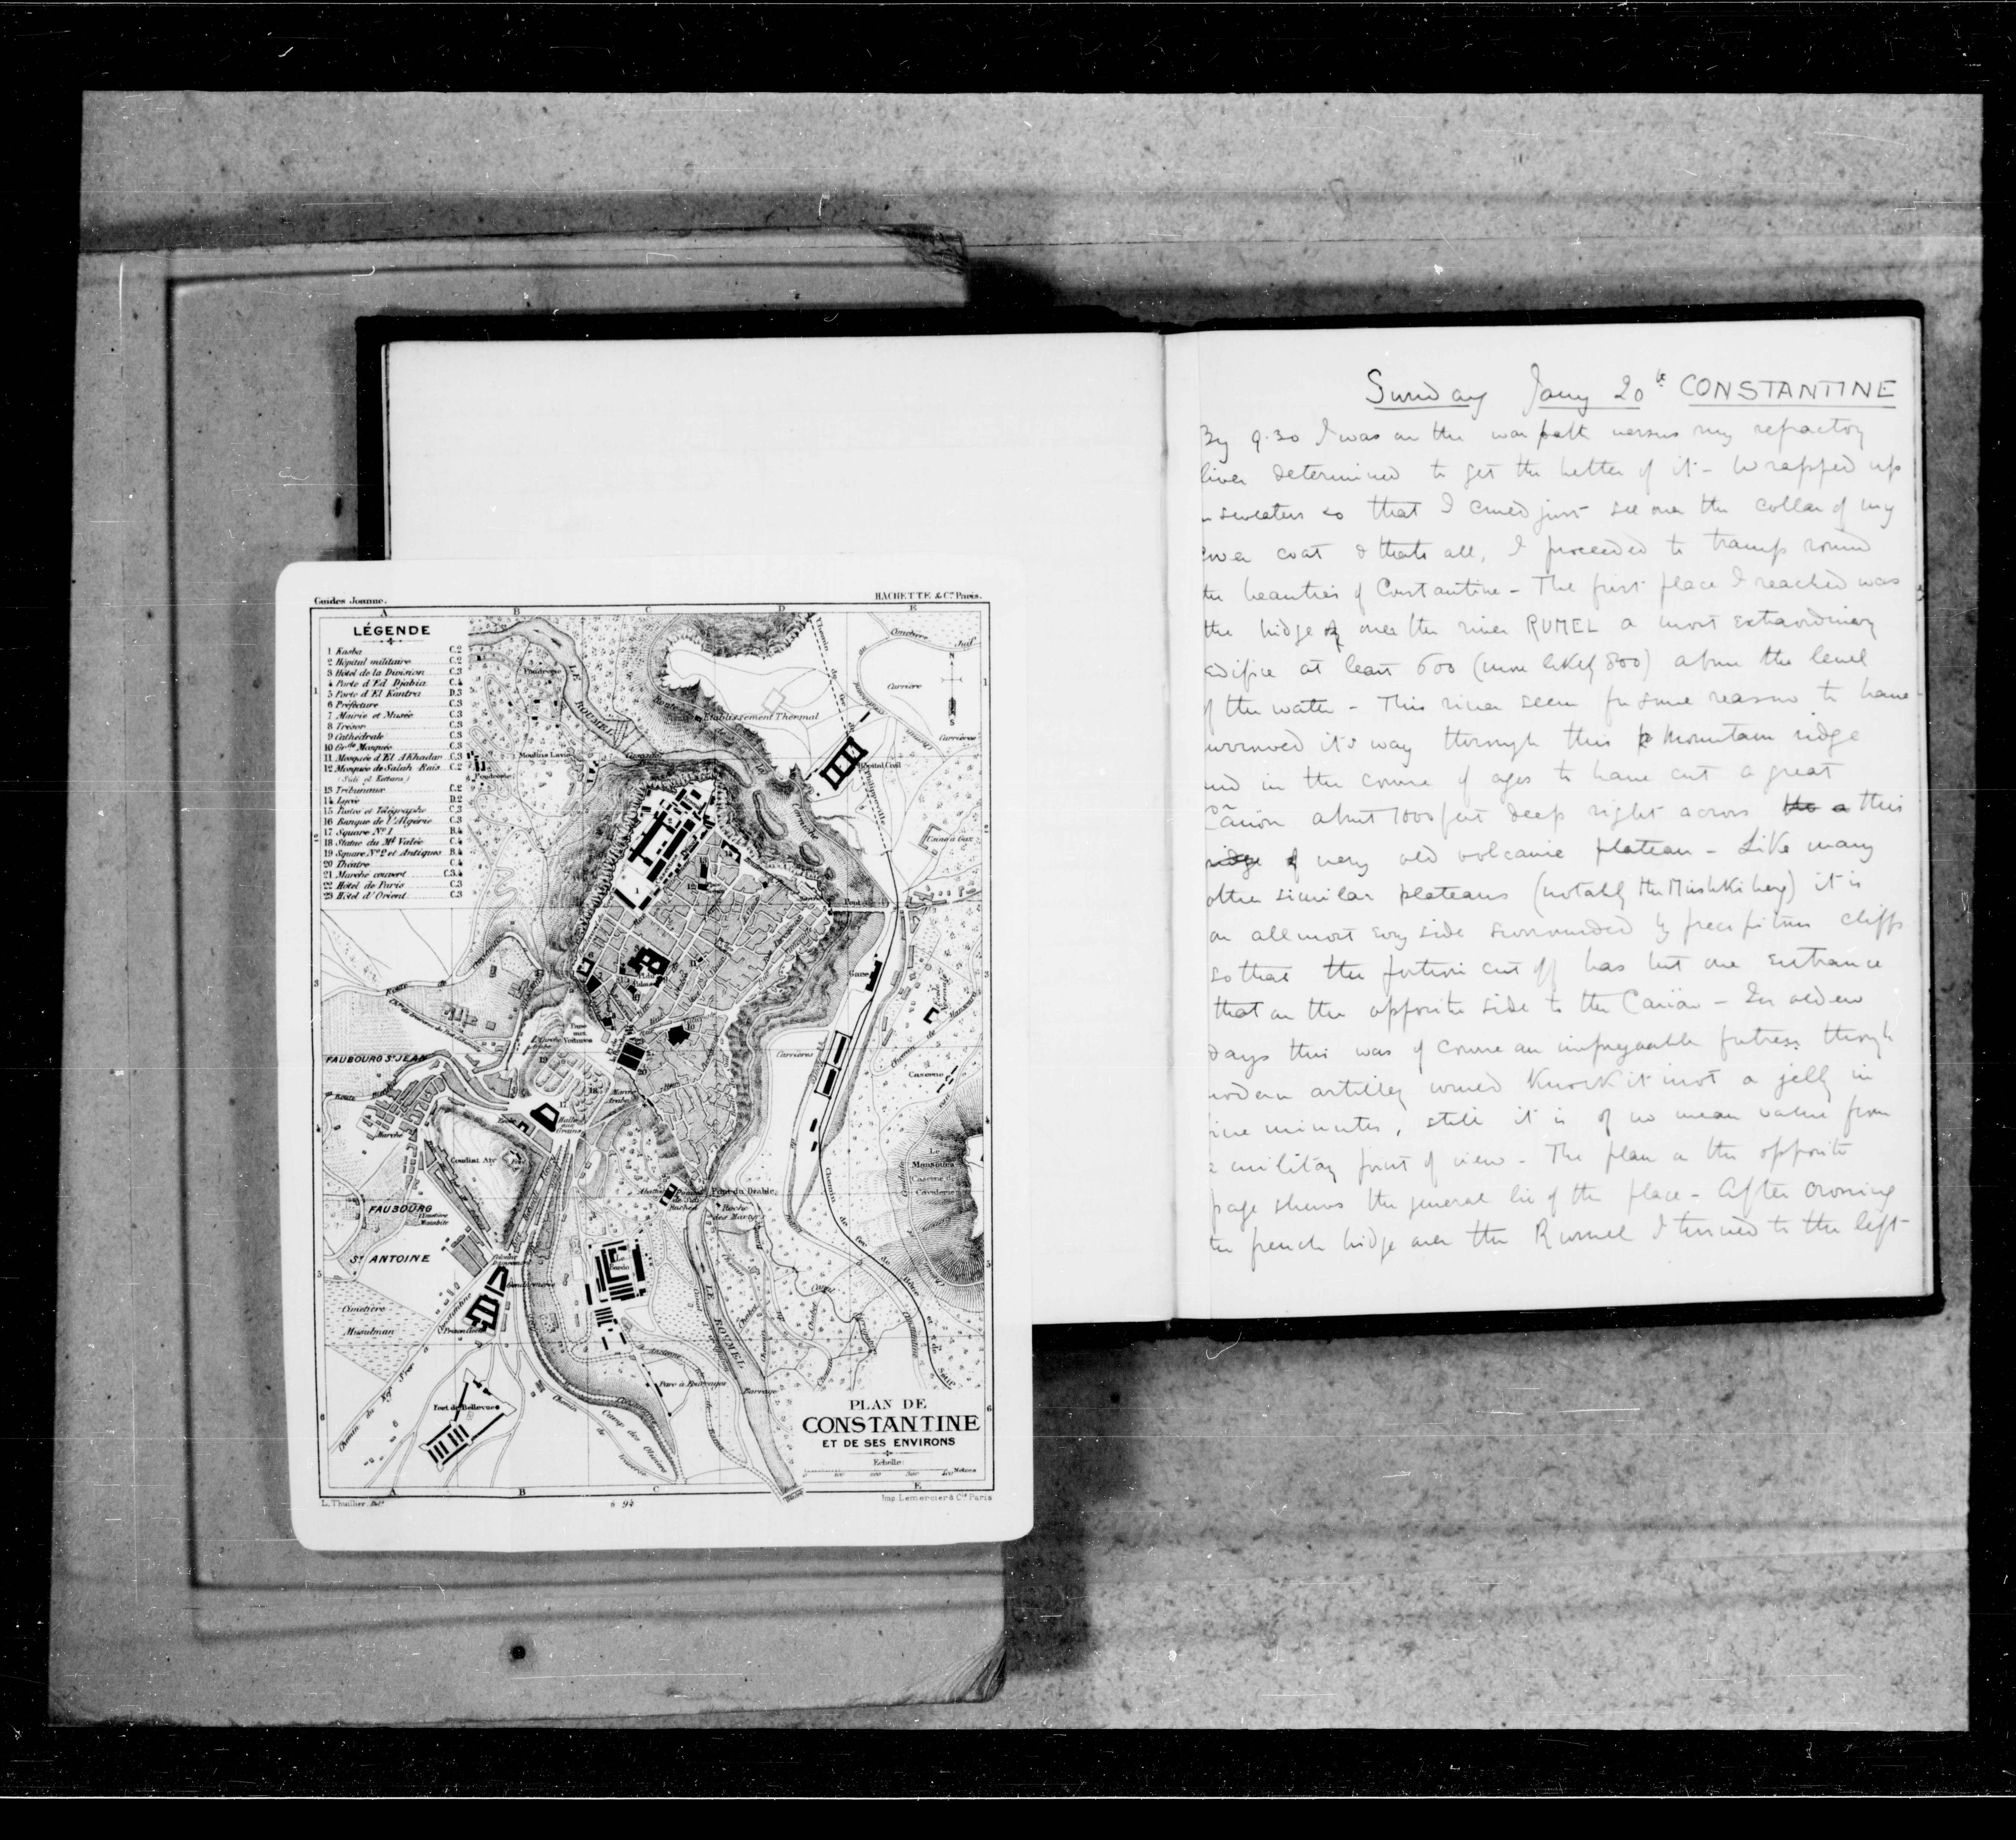 Guides Joanne.
HACHETTE & Cie Paris.
A B C D E
LÉGENDE
1 Kasba C.2
2 Hôpital militaire C.2
3 Hôtel de la Division C.3
4 Porte d'Ed Djabia C.4
5 Porte d'El Kantra D.3
6 Préfecture C.3
7 Mairie et Musée C.3
8 Trésor C.3
9 Cathédrale C.3
10 Gr.de Mosquée C.3
11 Mosquée d'El AKhadar C.3
12 Mosquée de Salah Rais C.2
(Sidi el Kettani)
13 Tribunaux C.2
14 Lycée D.2
15 Postes et Télégraphe C.3
16 Banque de l'Algérie C.3
17 Square No 1 B.4
18 Statue du Mal Valée C.4
19 Square No 2 et Antiques B.4
20 Théâtre C.4
21 Marché couvert C.3.4
22 Hôtel de Paris C.3
23 Hôtel d'Orient C.3
LE ROUMEL
Poudrerie
Etablissement Thermal
Cimetière Juif
Carrière
Carrières
N
S
Moulins Lavie
Hôpital Civil
Usine à Gaz
Pont
Gare
Carrières
Caserne
FAUBOURG ST JEAN
Marché
Halle aux Grains
Coudiat Aty
FAUBOURG
ST ANTOINE
Pont du Diable
Le Mansoura
Le Bardo
Gendarmerie
Cimetière
Musulman
LE ROUMEL
Parc à Fourrages
Barrage
Fort de Bellevue
Camp des Oliviers
PLAN DE
CONSTANTINE
ET DE SES ENVIRONS
Echelle:
A B C E
L. Thuillier, Delt
6 94
Imp. Lemercier & Cie Paris
Sunday Jany 20th CONSTANTINE
By 9.30 I was on the war path versus my refractory
liver determined to get the better of it - Wrapped up
in sweaters so that I could just see over the collar of my
over coat & thats all, I proceeded to tramp round
the beauties of Constantine - The first place I reached was
the bridge of over the river RUMEL a most extraordinary
edifice at least 600 (more likely 800) above the level
of the water - This river seem for some reason to have
wormed it's way through this mountain ridge
and in the course of ages to have cut a great
Cañon about 1000 feet deep right across the a this
ridge of very old volcanic plateau - Like many
other similar plateaus (notably the Mushki berg) it is
on allmost every side surrounded by precipitous cliffs
so that the portion cut off has but one entrance
that on the opposite side to the Cañon - In olden
days this was of course an impregnable fortress though
modern artillery would knock it inot a jelly in
five minutes, still it is of no mean value from
a military point of view - The plan on the opposite
page shews the general lie of the place - After crossing
the french bridge over the Rumel I turned to the left